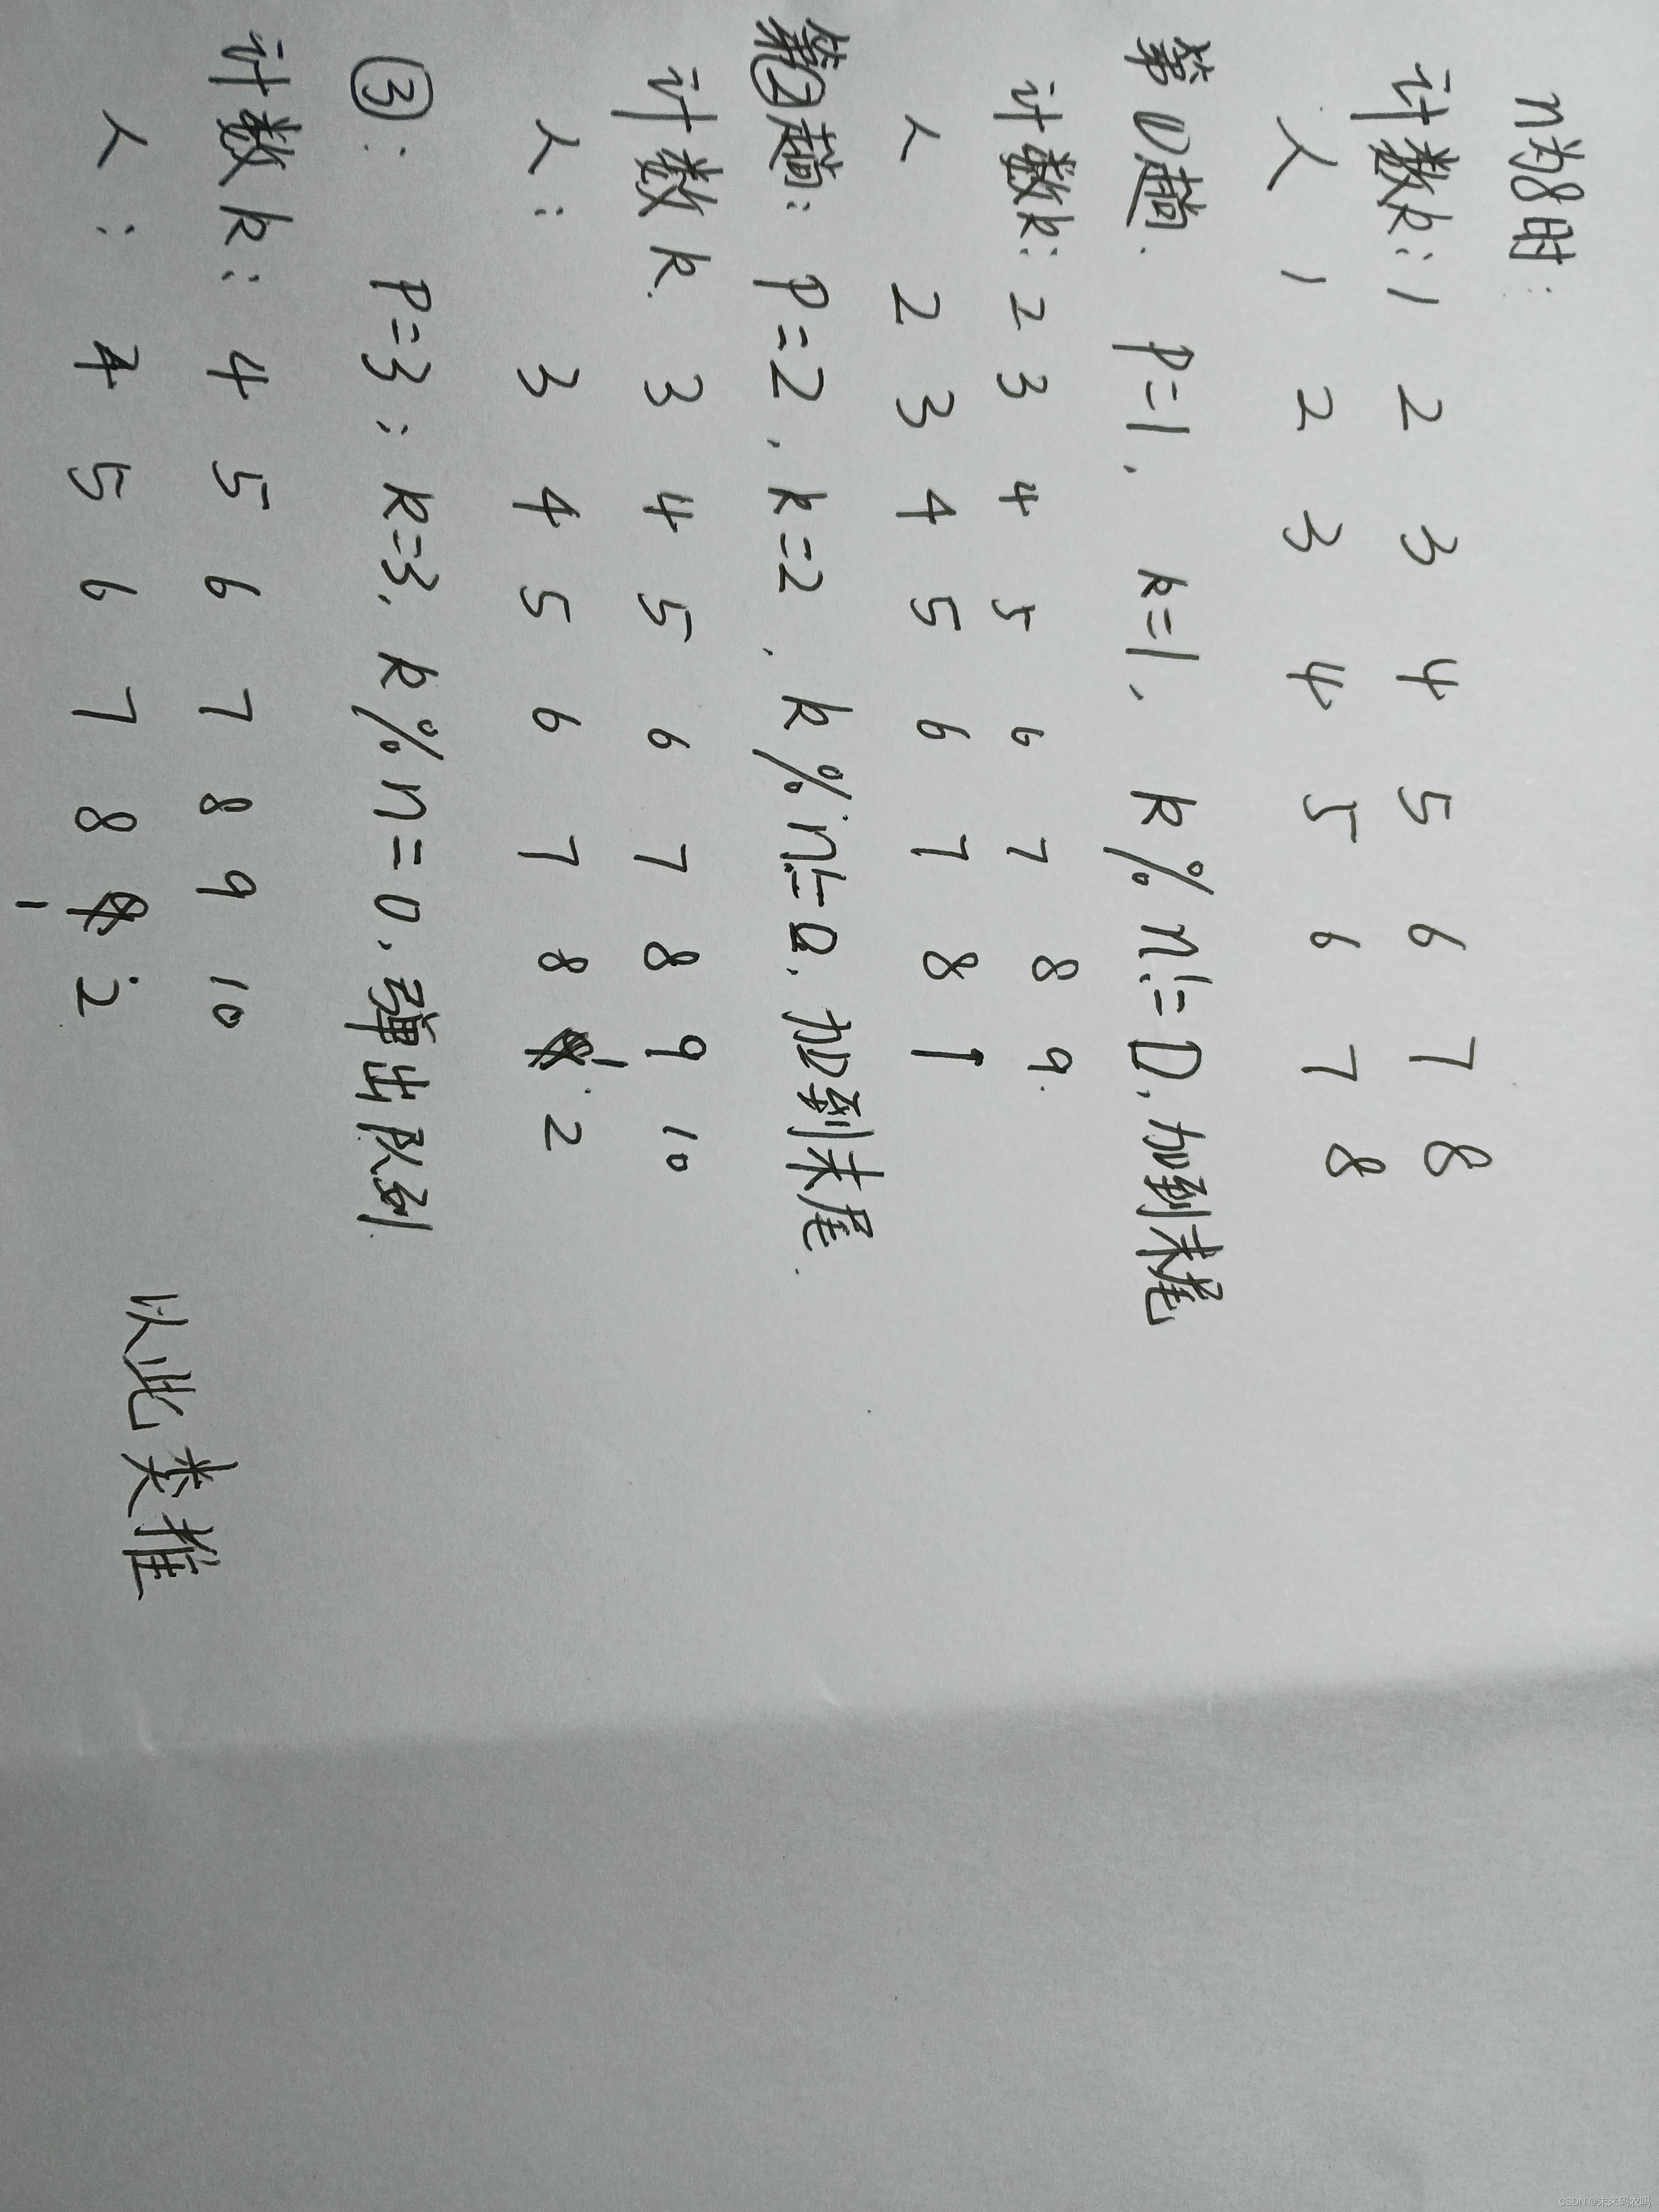 n为8时:
计数k: 1 2 3 4 5 6 7 8
人 1 2 3 4 5 6 7 8
第①趟. P=1, k=1, k%n!=0, 加到末尾
计数k: 2 3 4 5 6 7 8 9.
人 2 3 4 5 6 7 8 1
第②趟: P=2, k=2, k%n!=0, 加到末尾.
计数k. 3 4 5 6 7 8 9 10
人: 3 4 5 6 7 8 1 2
③: P=3; k=3, k%n=0, 弹出队列
计数k: 4 5 6 7 8 9 10
人: 4 5 6 7 8 1 2
以此类推
CSDN @未来码农吗